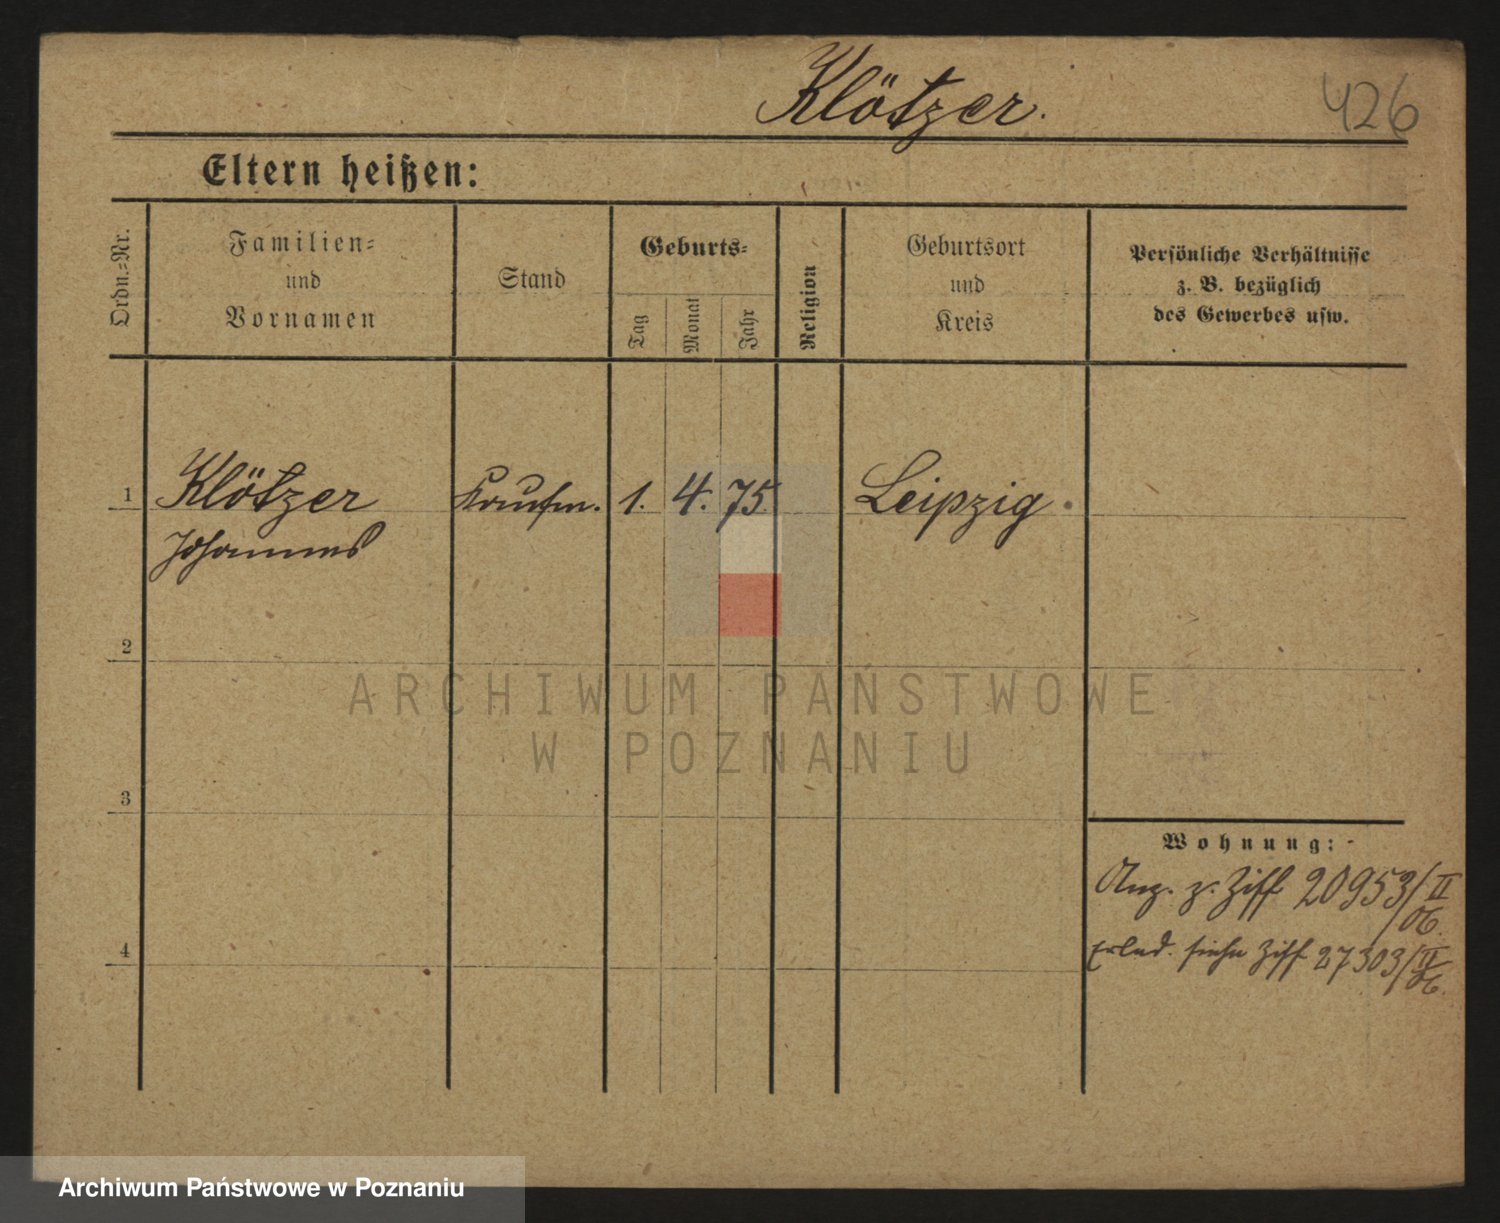 Klötzer.
426
Eltern heißen:
Ordn.-Nr.
Familien-
und
Vornamen
Stand
Geburts-
Tag
Monat
Jahr
Religion
Geburtsort
und
Kreis
Persönliche Verhältnisse
z. B. bezüglich
des Gewerbes usw.
1 Klötzer Kaufm. 1. 4. 75. Leipzig.
Johannes
2
ARCHIWUM PAŃSTWOWE
W POZNANIU
3
Wohnung:
Anz. z. Ziff 20953/II
06.
4
Erled. siehe Ziff 27303/II
06.
Archiwum Państwowe w Poznaniu